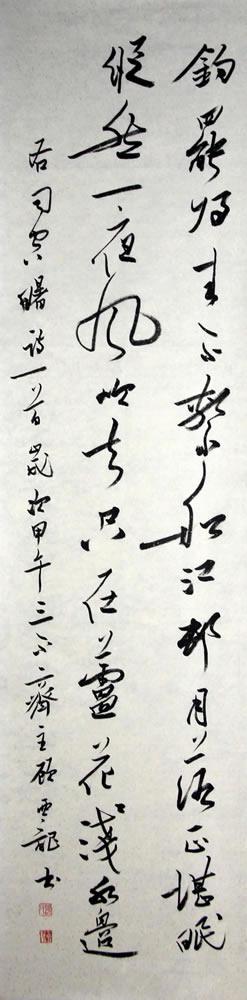 釣罷歸来不繫船江邨月落正堪眠
縱然一夜風吹去只在蘆花淺水邊
右司空曙詩一首歲次甲午三不齋主顧雲龍書